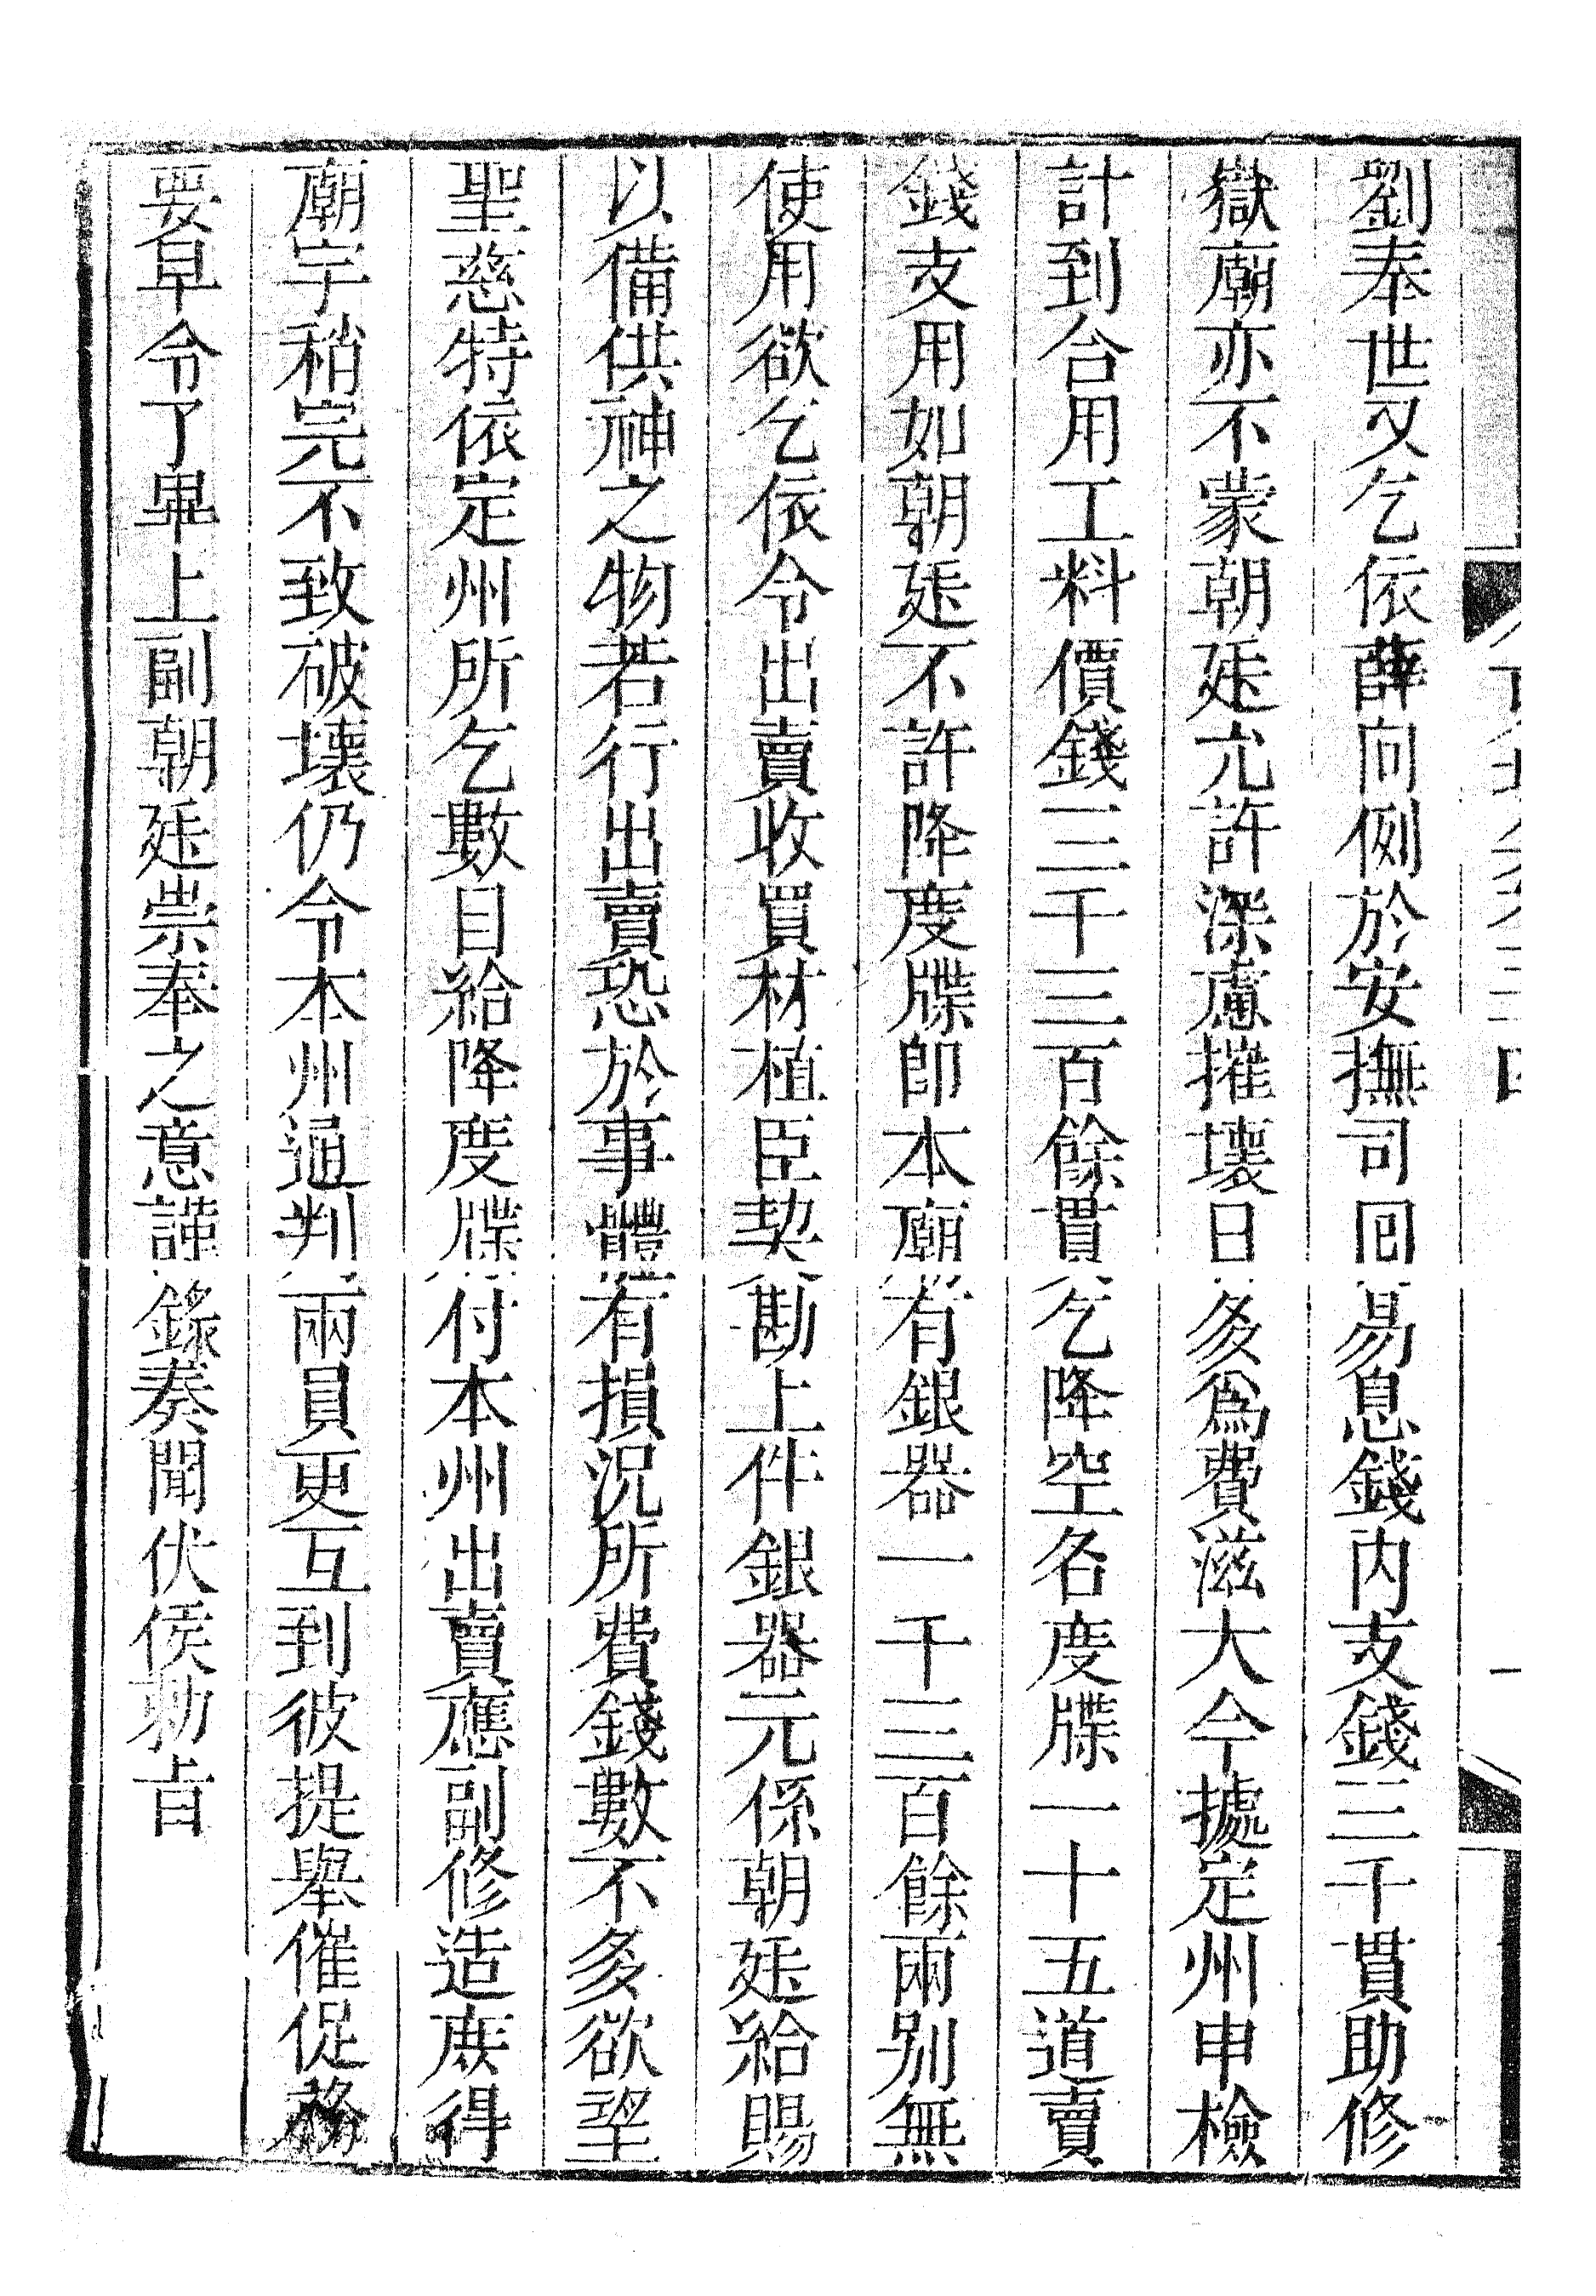 劉奉世又乞依薛向例於安撫司回易息錢内支錢三千貫助修
嶽廟亦不蒙朝廷允許深慮摧壞日多爲費滋大今據定州申檢
計到合用工料價錢三千三百餘貫乞降空名度牒一十五道賣
錢支用如朝廷不許降度牒即本廟有銀器一千三百餘兩别無
使用欲乞依令出賣收買材植臣契勘上件銀器元係朝廷給賜
以備供神之物若行出賣恐於事體有損況所費錢數不多欲望
聖慈特依定州所乞數目給降度牒付本州出賣應副修造庶得
廟宇稍完不致破壞仍令本州通判兩員更互到彼提舉催促務
要早令了畢上副朝廷崇奉之意謹錄奏聞伏侯勅旨